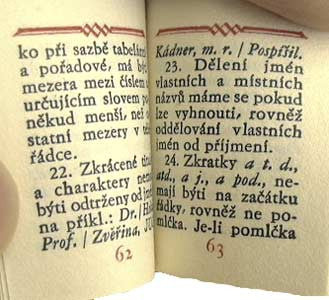 ko při sazbě tabelární
a pořadové, má být
mezera mezi číslem
určujícím slovem po-
někud menší, než o-
statní mezery v té
řádce.
22. Zkrácené
a charaktery nemají
býti odtrženy od jmen
na příkl.: Dr. /
Prof. / Zvěřina,
62
Kádner, m. r. / Pospíšil.
23. Dělení jmén
vlastních a místních
názvů máme se pokud
lze vyhnouti, rovněž
oddělování vlastních
jmen od příjmení.
24. Zkratky a t. d.,
atd., a j., a pod., ne-
mají býti na začátku
řádky, rovněž ne po-
mlčka. Je-li pomlčka
63